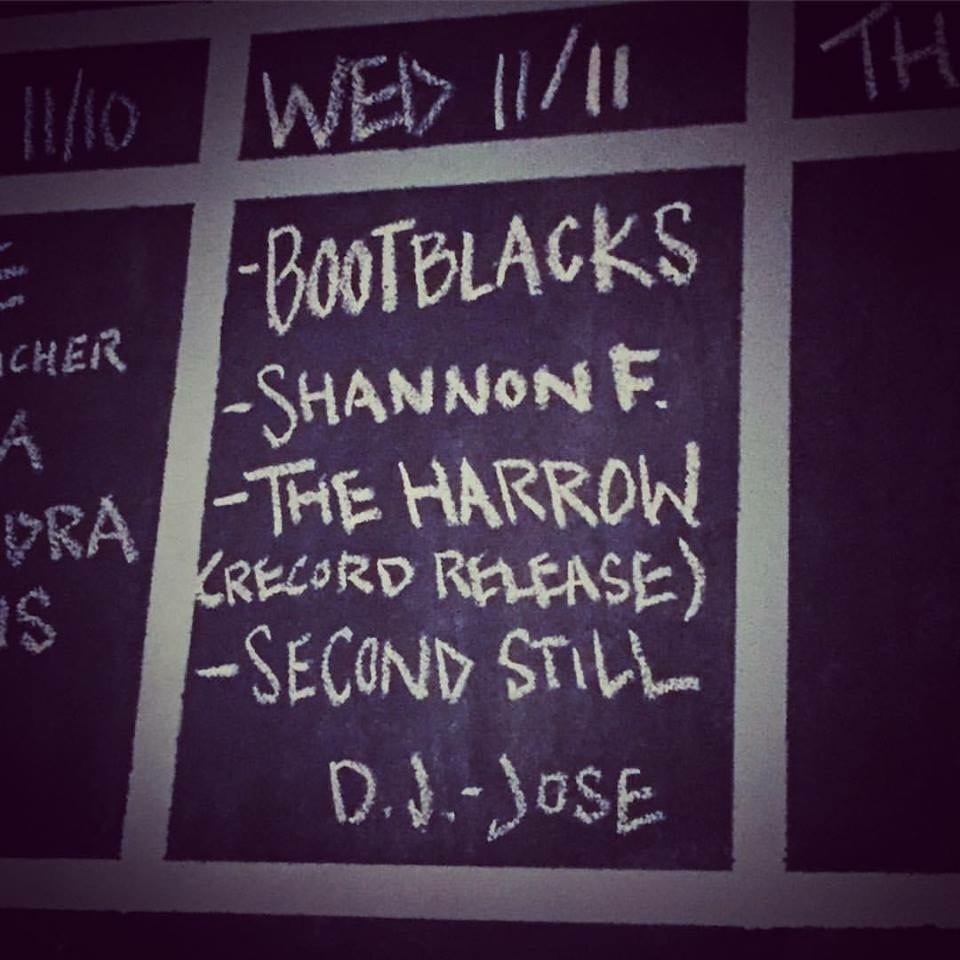 11/10
WED 11/11
TH
ICHER
A
DRA
NS
-BOOTBLACKS
-SHANNON F.
-THE HARROW
(RECORD RELEASE)
-SECOND STILL
D.J.-JOSE